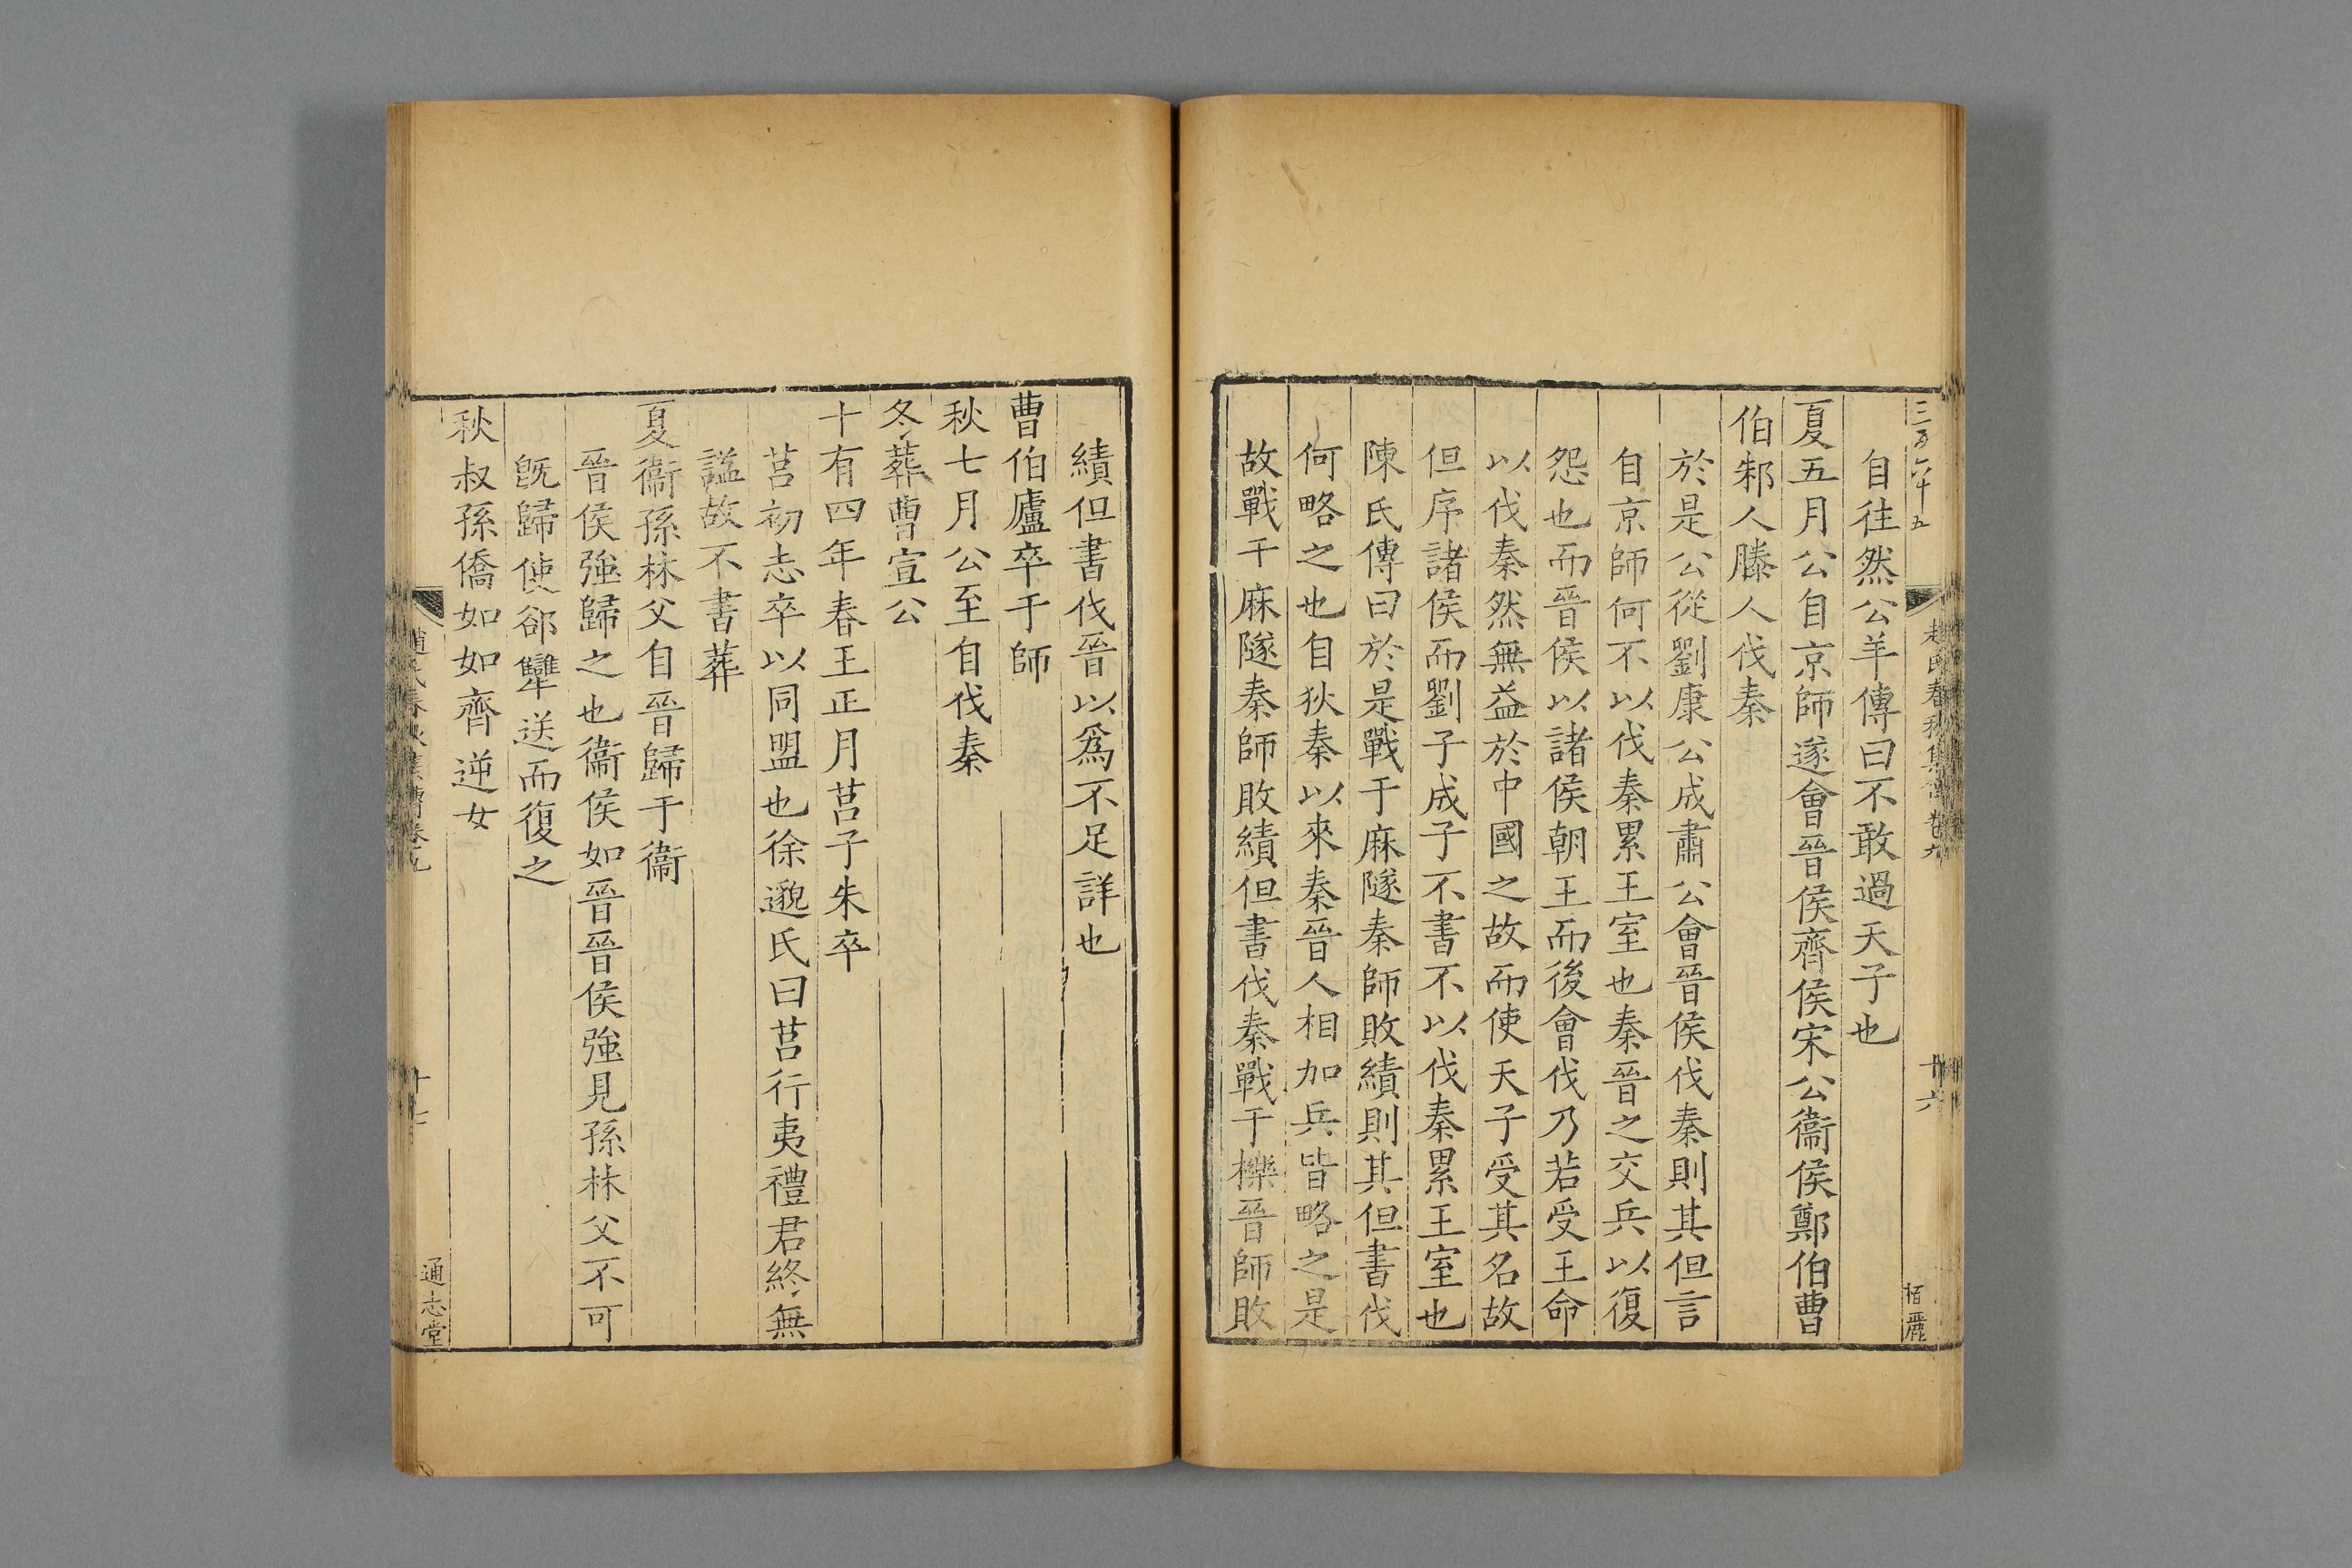 三百六十五
趙氏春秋集傳卷九
十六
栢麗
自往然公羊傳曰不敢過天子也
夏五月公自京師遂會晉侯齊侯宋公衞侯鄭伯曹
伯邾人滕人伐秦
於是公從劉康公成肅公會晉侯伐秦則其但言
自京師何不以伐秦累王室也秦晉之交兵以復
怨也而晉侯以諸侯朝王而後會伐乃若受王命
以伐秦然無益於中國之故而使天子受其名故
但序諸侯而劉子成子不書不以伐秦累王室也
陳氏傳曰於是戰于麻隧秦師敗績則其但書伐
何略之也自狄秦以來秦晉人相加兵皆略之是
故戰于麻隧秦師敗績但書伐秦戰于櫟晉師敗
績但書伐晉以爲不足詳也
曹伯廬卒于師
秋七月公至自伐秦
冬葬曹宣公
十有四年春王正月莒子朱卒
莒初志卒以同盟也徐邈氏曰莒行夷禮君終無
諡故不書葬
夏衞孫林父自晉歸于衞
晉侯強歸之也衞侯如晉晉侯強見孫林父不可
旣歸使郤犨送而復之
秋叔孫僑如如齊逆女
趙氏春秋集傳卷九
十七
通志堂